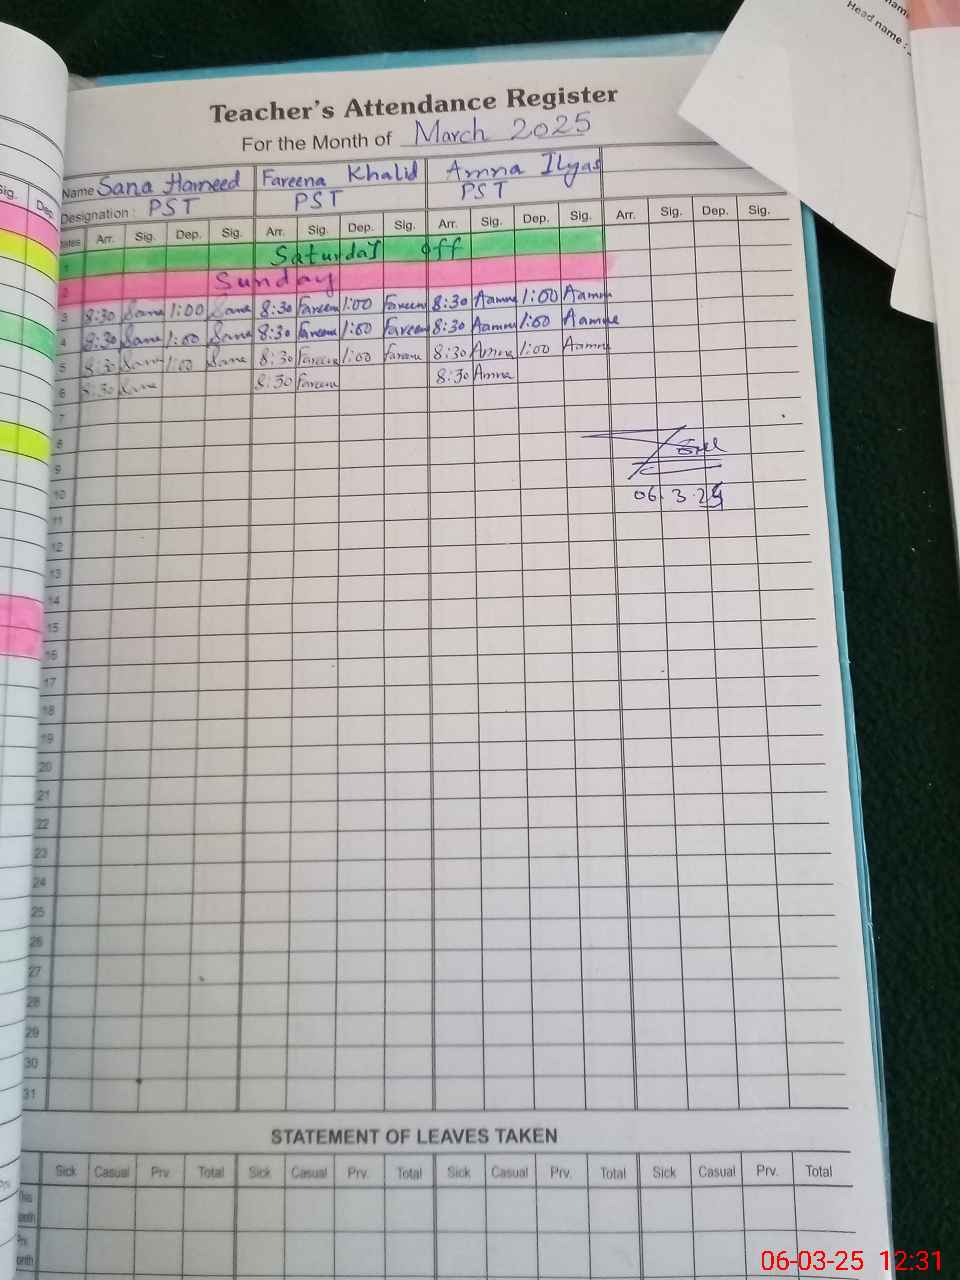 Head name :
Teacher's Attendance Register
For the Month of March 2025
Name Sana Hameed Fareena Khalid Amna Ilyas
Designation : PST PST PST
Sig. Dep.
Dates Arr. Sig. Dep. Sig. Arr. Sig. Dep. Sig. Arr. Sig. Dep. Sig. Arr. Sig. Dep. Sig.
1 Saturday off
2 Sunday
3 8:30 Sana 1:00 Sana 8:30 Fareena 1:00 Fareena 8:30 Aamna 1:00 Aamna
4 8:30 Sana 1:00 Sana 8:30 Fareena 1:00 Fareena 8:30 Aamna 1:00 Aamna
5 8:30 Sana 1:00 Sana 8:30 Fareena 1:00 Fareena 8:30 Amna 1:00 Aamna
6 8:30 Sana 8:30 Fareena 8:30 Amna
7
8
9
10 06.3.25
11
12
13
14
15
16
17
18
19
20
21
22
23
24
25
26
27
28
29
30
31
STATEMENT OF LEAVES TAKEN
Sick Casual Prv. Total Sick Casual Prv. Total Sick Casual Prv. Total Sick Casual Prv. Total
This
month
Prv.
month
06-03-25 12:31